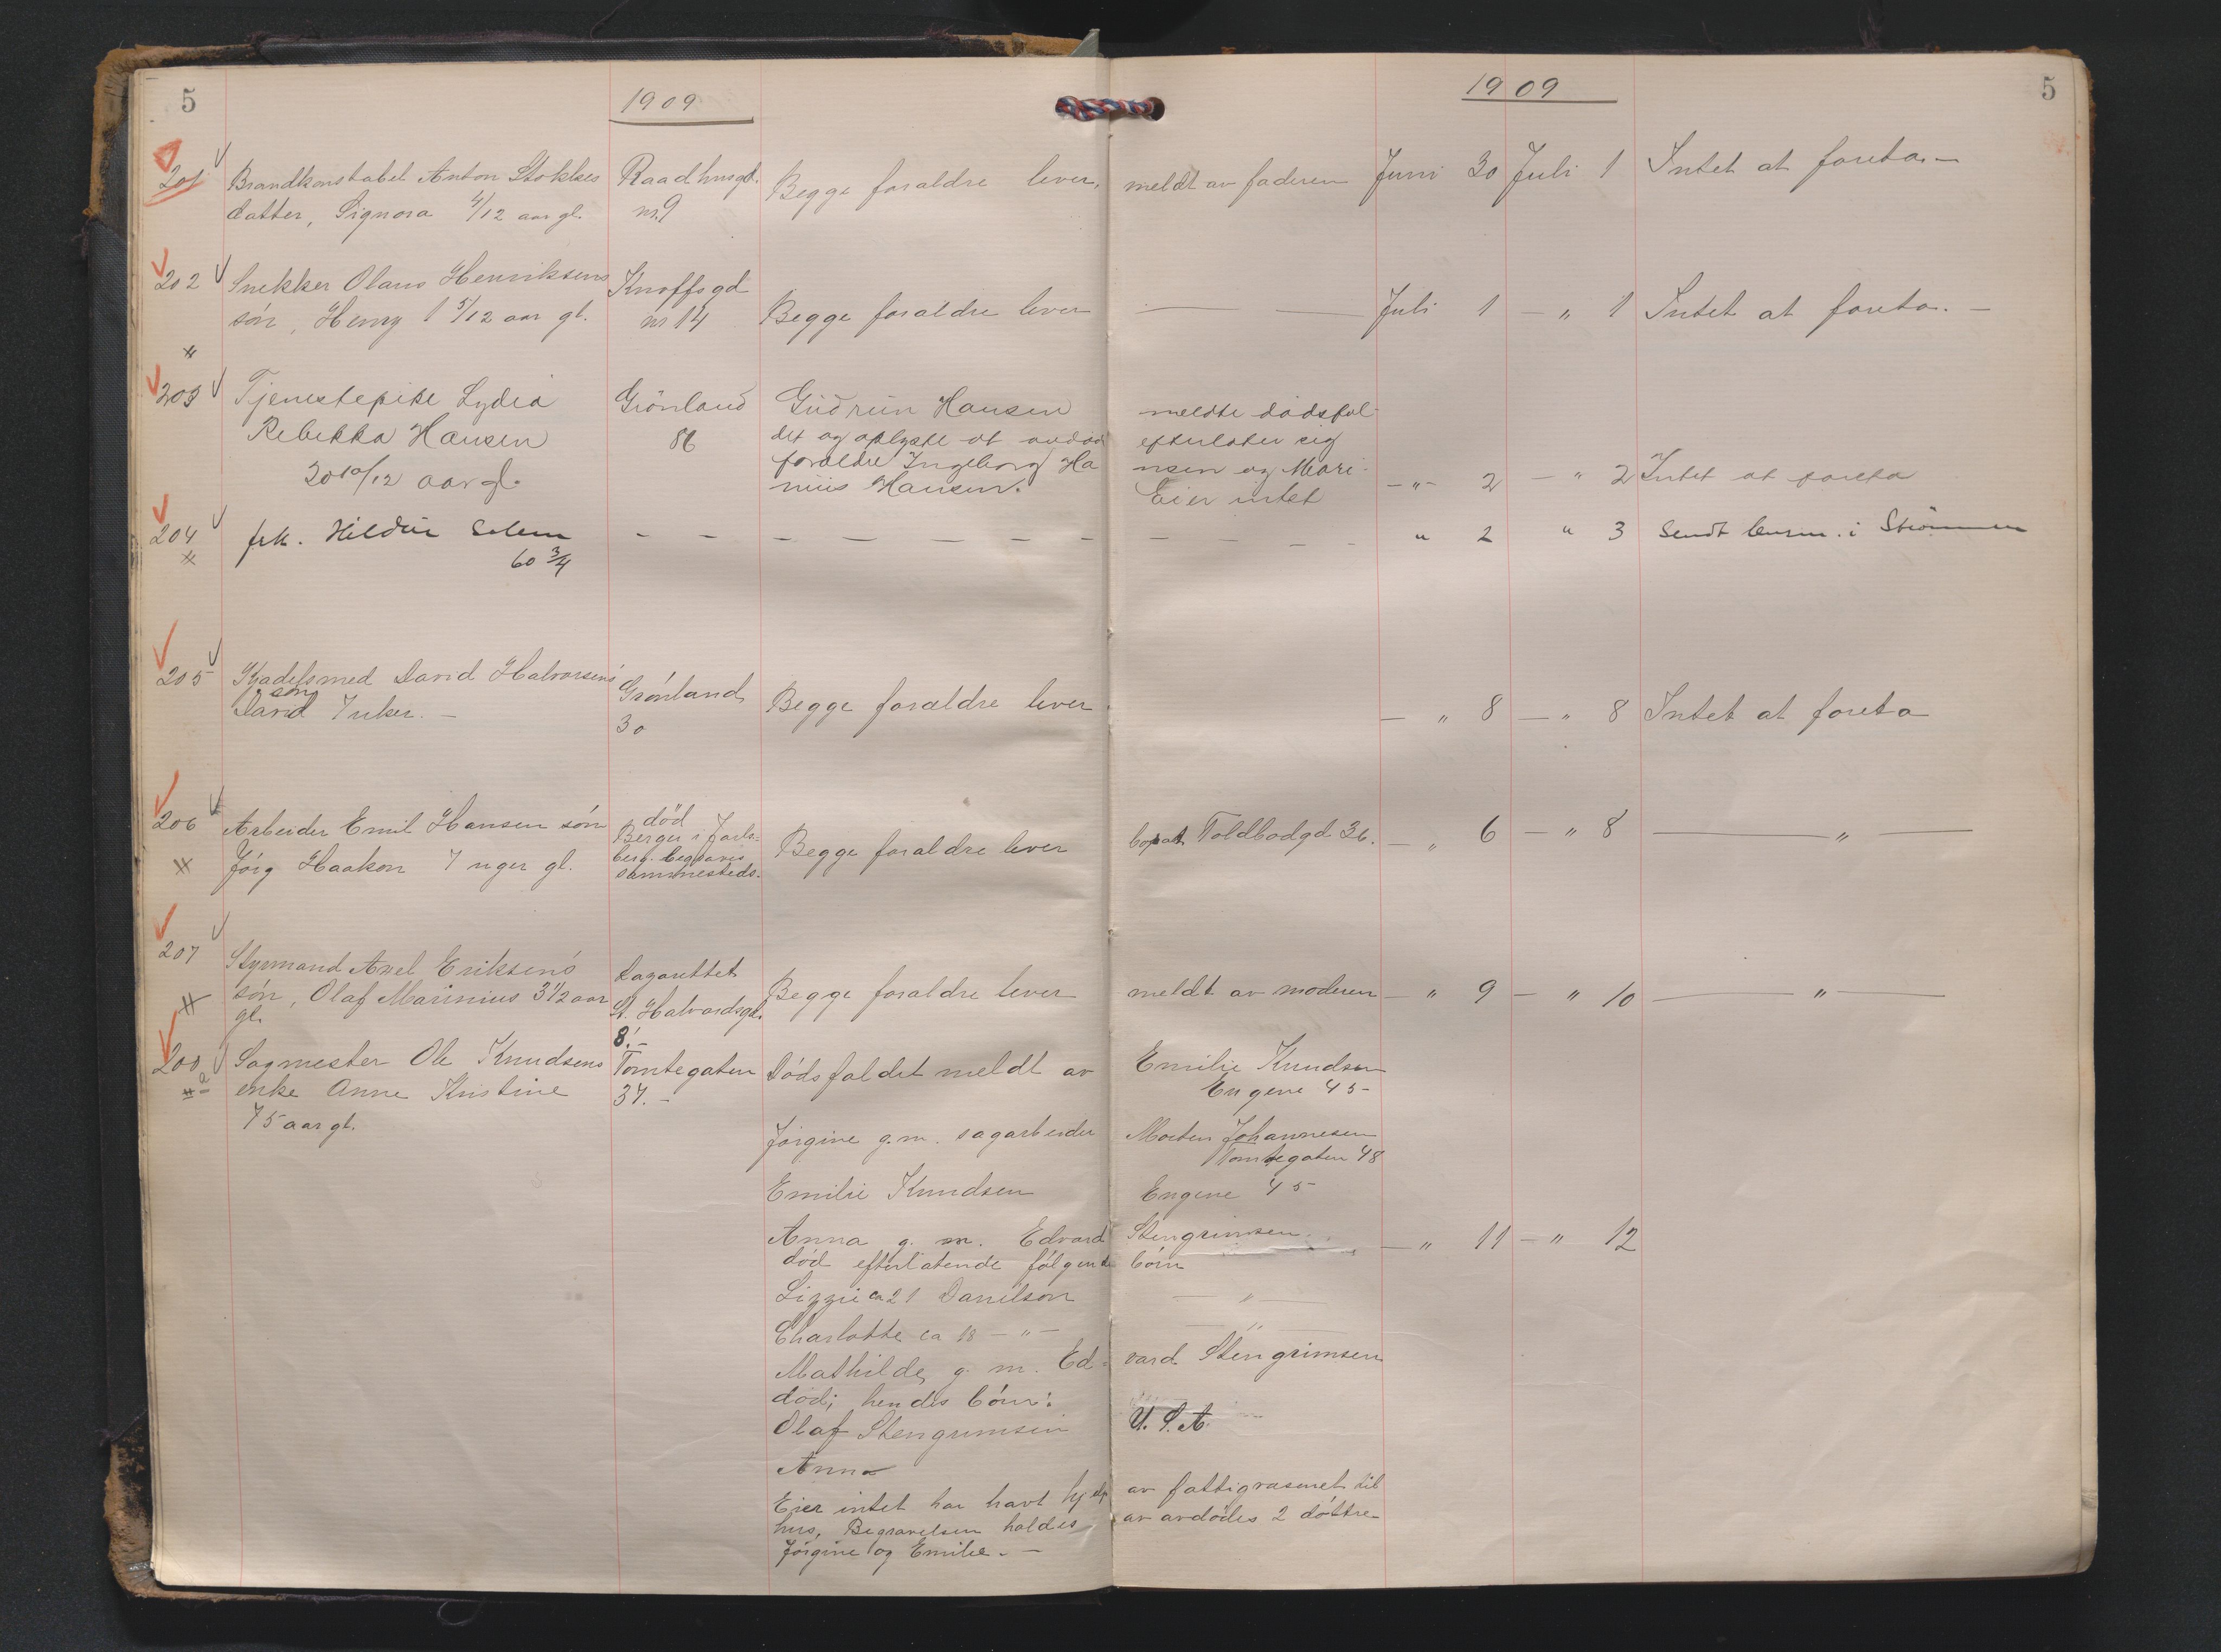 5
1909
1909
5
201 Brandkonstabel Anton Stokkes Raadhusgd. Begge forældre lever, meldt av faderen Juni 30 Juli 1 Intet at foreta. -
datter, Signora 4/12 aar gl. nr. 9
202 Snekker Olaus Henriksens Knoffsgd
søn, Henry 1 5/12 aar gl. nr 14 Begge forældre lever — — Juli 1 - " 1 Intet at foreta. -
203 Tjenestepike Lydia Grönland Gudrun Hansen meldte dödsfal-
Rebekka Hansen 86 det og oplyste at avdöd efterlater sig
20 10/12 aar gl. forældre Ingeborg Ha nsen og Mari-
nius Hansen. Eier intet - " - 2 - " 2 Intet at foreta
204 frk. Hildur Solem - - - - - - - - " 2 " 3 Sendt lensm. i Strömmen
60 3/4
205 David Halvorsens Grønland
søn
David 7 uker. - 30 Begge forældre lever - " 8 - " 8 Intet at foreta
206 Arbeider Emil Hansen søn död
Berger i Jarls=
Jørg Haakon 7 uger gl. berg. begraves Begge forældre lever bopat Toldbodgd 36. - " 6 - " 8 — " —
sammesteds.
207 Styrmand Axel Eriksens Lazarettet
søn, Olaf Marinius 3 1/2 aar St. Halvardsgd. Begge forældre lever meldt av moderen - " 9 - " 10 — " —
gl. 8. -
208 Sagmester Ole Knudsens Tomtegaten Dødsfaldet meldt av Emilie Knudsen
enke Anne Kristine 37. - Engene 45-
75 aar gl.
Jørgine g. m. sagarbeider Morten Johannesen
Tomtegaten 48
Emilie Knudsen Engene 45
Anna g. m. Edvard Stengrimsen. - " 11 - " 12
død efterlatende følgende børn
Lizzie ca 21 Danilson — " —
Charlotte ca 18 - " - — " —
Mathilde, g. m. Ed= vard Stengrimsen
död; hendes børn:
Olaf Stengrimsen U. S. A.
Anna
Eier intet har havt hjelp av fattigvæsenet til
hus, Begravelsen holdes av avdödes 2 døttre
Jørgine og Emilie. -